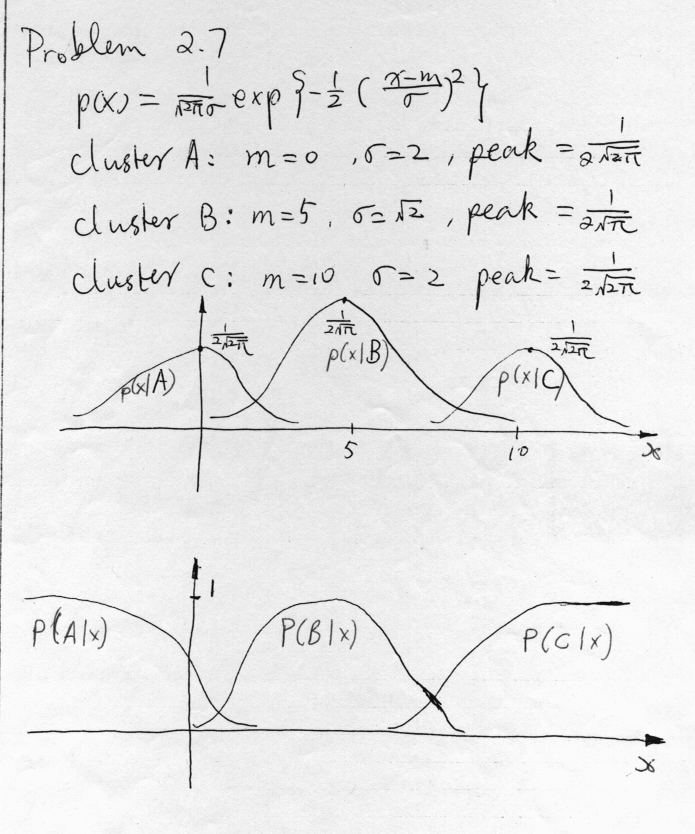 Problem 2.7
p(x) = 1/√2πσ exp{-1/2 (x-m/σ)²}
cluster A: m=0 , σ=2 , peak = 1/2√2π
cluster B: m=5, σ=√2 , peak = 1/2√π
cluster C: m=10 σ=2 peak= 1/2√2π
1/2√2π 1/2√π 1/2√2π
p(x|A) p(x|B) p(x|C)
5 10 x
1
P(A|x) P(B|x) P(C|x)
x